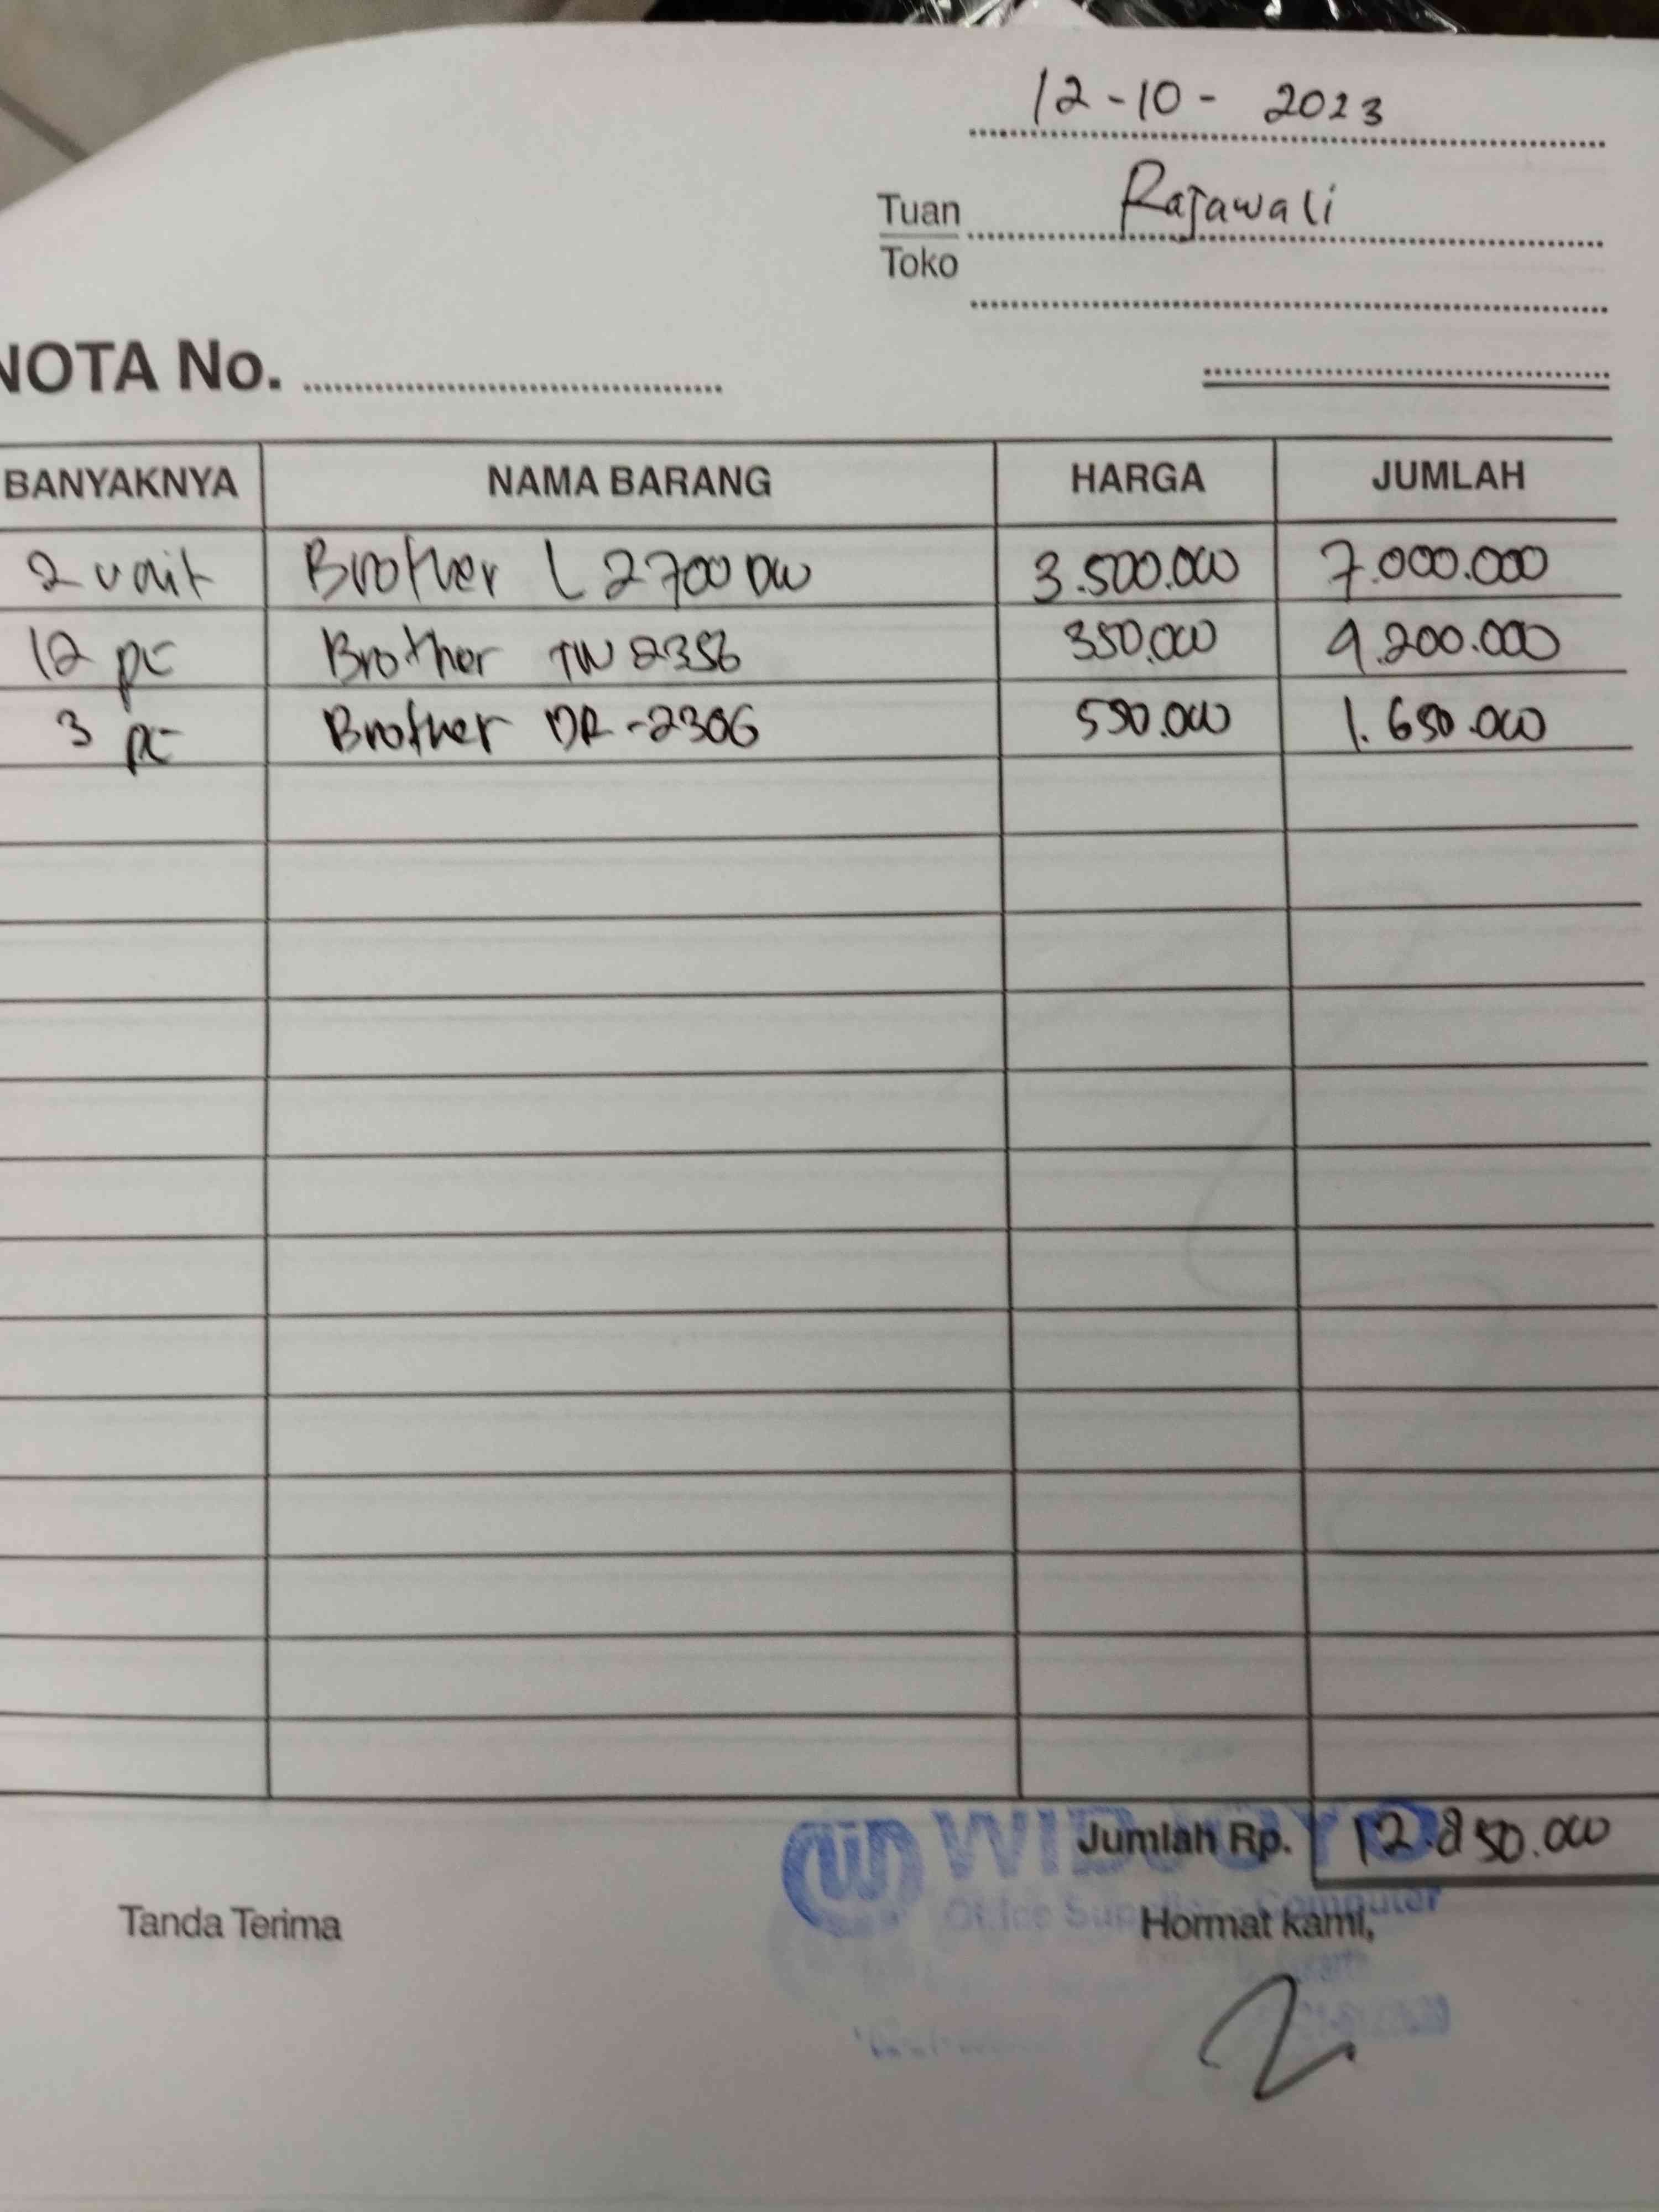 12-10-2023
Tuan Rajawali
Toko
NOTA No.
BANYAKNYA NAMA BARANG HARGA JUMLAH
2 unit Brother L2700DW 3.500.000 7.000.000
12 pc Brother TN 2356 350.000 4.200.000
3 pc Brother DR-2306 550.000 1.650.000
Jumlah Rp. 12.850.000
WIDJOYO
Office Supplier - Computer
Tanda Terima Hormat kami,